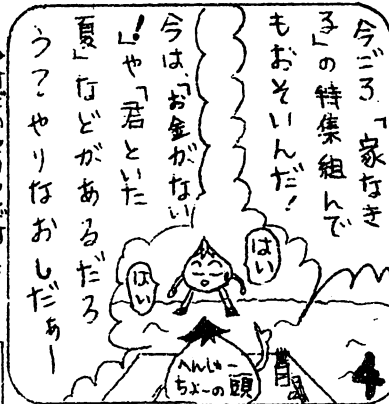 今ごろ「家なき
る」の特集組んで
もおそいんだ!
今は、「お金がない
!」や「君といた
夏」などがあるだろ
う?やりなおしだぁー
はい
はい
へんしゅー
ちょーの頭
4